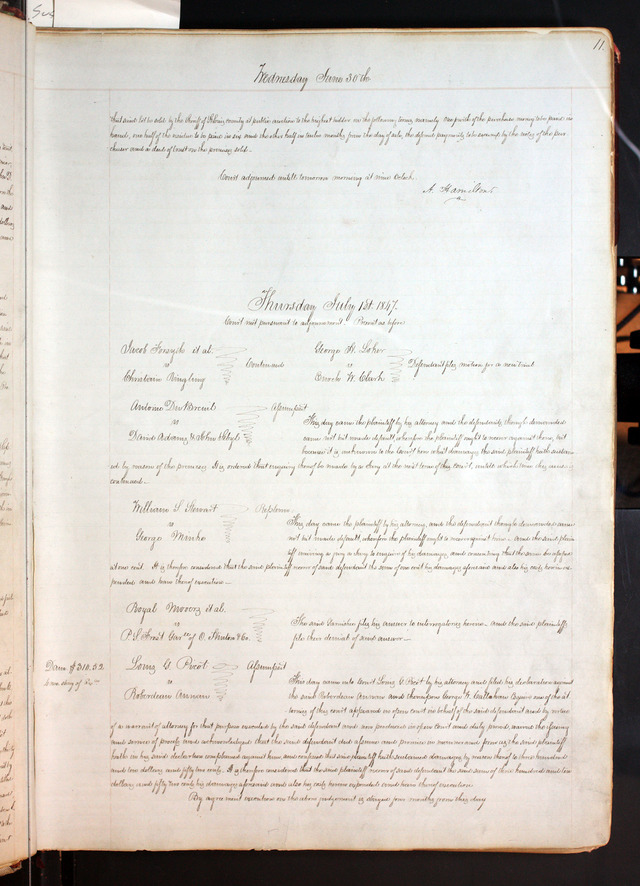 11.
Wednesday June 30th
that said lot be sold by the Sheriff of county at public auction to the highest bidder on the following terms, namely, of the purchase money to be paid in
hand, one half of the residue to be paid in six and the other half in twelve months from the day of sale, the deferred payments to be secured by the notes of the pur-
chaser and a deed of trust on the premises sold.
Court adjourned untill tomorrow morning at nine oclock.
A. Hamilton
Thursday July 1st. 1847.
Court met pursuant to adjournment. Present as before
Jacob Forsyth et al.
vs
Christian
Continued
George H. Loker
vs
Enoch W. Clark
Defendant files motion for a new trial
Antonio
vs
David Adams & John
Assumpsit
This day came the plaintiff by his attorney and the defendants, though demanded
came not but made default, wherefore the plaintiff ought to recover against them, but
because it is unknown to the Court here what damages the said plaintiff hath sustain-
ed by reason of the premises It is ordered that inquiry thereof be made by a Jury at the next term of this Court, untill which time this cause is
continued.
William S. Stewart
vs
George
Replevin
This day came the plaintiff by his attorney, and the defendant though demanded came
not but made default, wherefore the plaintiff ought to recover against him and the said plain-
tiff waiving a jury to inquire of his damages, and consenting that the same be assessed
at one cent. It is therefore considered that the said plaintiff recover of said defendant the sum of one cent his damages aforesaid and also his costs herein ex-
pended and have thereof execution
Royal Moores et al.
vs
P. S. Frost Gar.ee of O. & Co.
The said Garnishee files his answer to interrogatories herein and the said plaintiffs
file their denial of said answer
Dam $310,52.
Louis G. Picot
vs
Roberdeau Annan
Assumpsit
This day came into Court Louis G. Picot by his attorney and filed his declaration against
the said Roberdeau Annan and thereupon George W. Callahan Esquire one of the at-
torneys of this court appeared in open court on behalf of the said defendant and by virtue
of a warrant of attorney for that purpose executed by the said defendant and now produced in open Court and duly proved, waived the issuing
and service of process and acknowledged that the said defendant did assume and promise in manner and form as the said plaintiff
hath in his said declaration complained against him, and confessed that the said plaintiff hath sustained damages by reason thereof to three hundred
and ten dollars and fifty two cents. It is therefore considered that the said plaintiff recover of said defendant the said sum of three hundred and ten
dollars and fifty two cents his damages aforesaid and also his costs herein expended and have thereof execution.
By agreement execution on the above judgement is stayed four months from this day